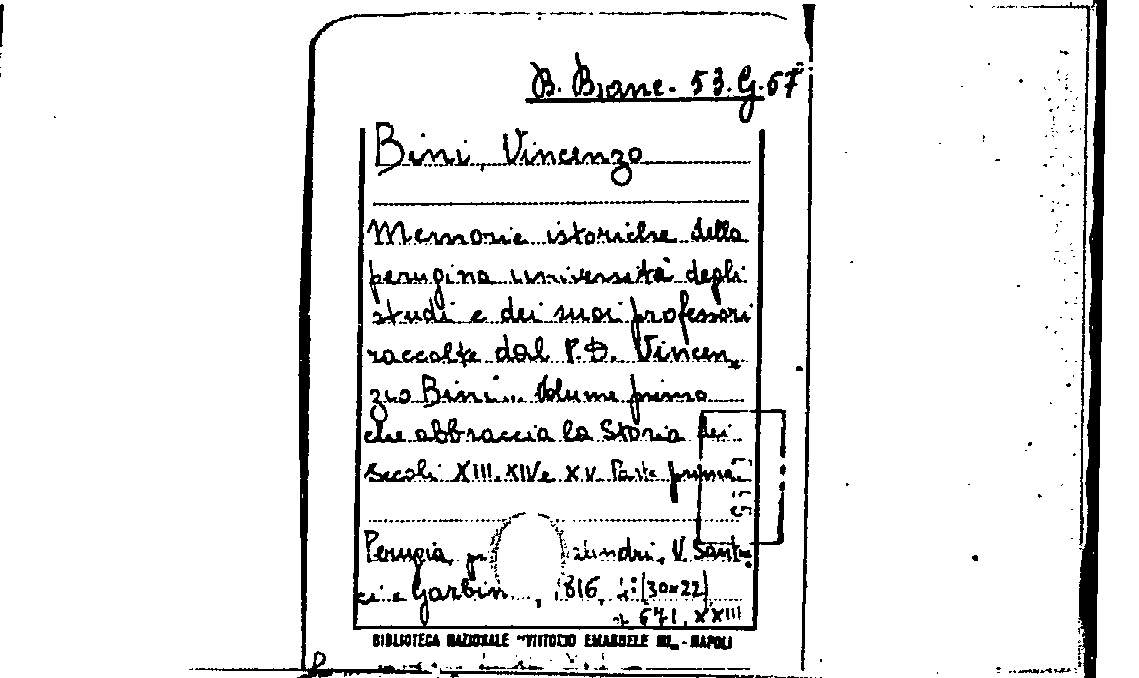 B. Branc. 53. G. 67
Bini, Vincenzo
Memorie istoriche della
perugina università degli
studi e dei suoi professori
raccolte dal P. D. Vincen
zio Bini... Volume primo
che abbraccia la Storia dei
secoli XIII, XIV e XV. Parte prima
Perugia, V. Santuc
ci e Garbin..., 1816, (30×22)
671, XXIII
BIBLIOTECA NAZIONALE "VITTORIO EMANUELE III" - NAPOLI